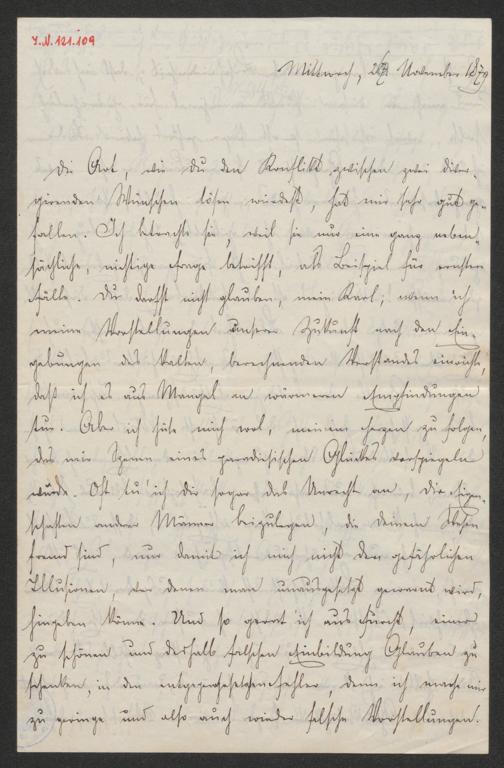 I.N. 121.109
Mittwoch, 26. November 1879
Die Art, wie Du den Konflikt zwischen zwei diver-
girenden Wünschen lösen würdest, hat mir sehr gut ge-
fallen. Ich betrachte sie, weil sie nur eine ganz neben-
sächliche, nichtige Frage betrifft, als Beispiel für ernstere
Fälle. Du darfst nicht glauben, mein Karl, wenn ich
meine Vorstellungen unserer Zukunft nach den Ein-
gebungen des kalten, berechnenden Verstandes einrichte,
daß ich es aus Mangel an wärmeren Empfindungen
tue. Aber ich hüte mich wol, meinem Herzen zu folgen,
das mir Szenen eines paradiesischen Glückes vorspiegeln
würde. Oft tu' ich dir sogar das Unrecht an, Dir Eigen-
schaften anderer Männer beizulegen, die Deinem Wesen
fremd sind, nur damit ich mich nicht den gefährlichen
Illusionen, vor denen man unausgesetzt gewarnt wird,
hingeben könne. Und so gerat ich aus Furcht, einer
zu schönen und deshalb falschen Einbildung Glauben zu
schenken, in den entgegengesetzten Fehler, denn ich mache mir
zu geringe und also auch wieder falsche Vorstellungen.